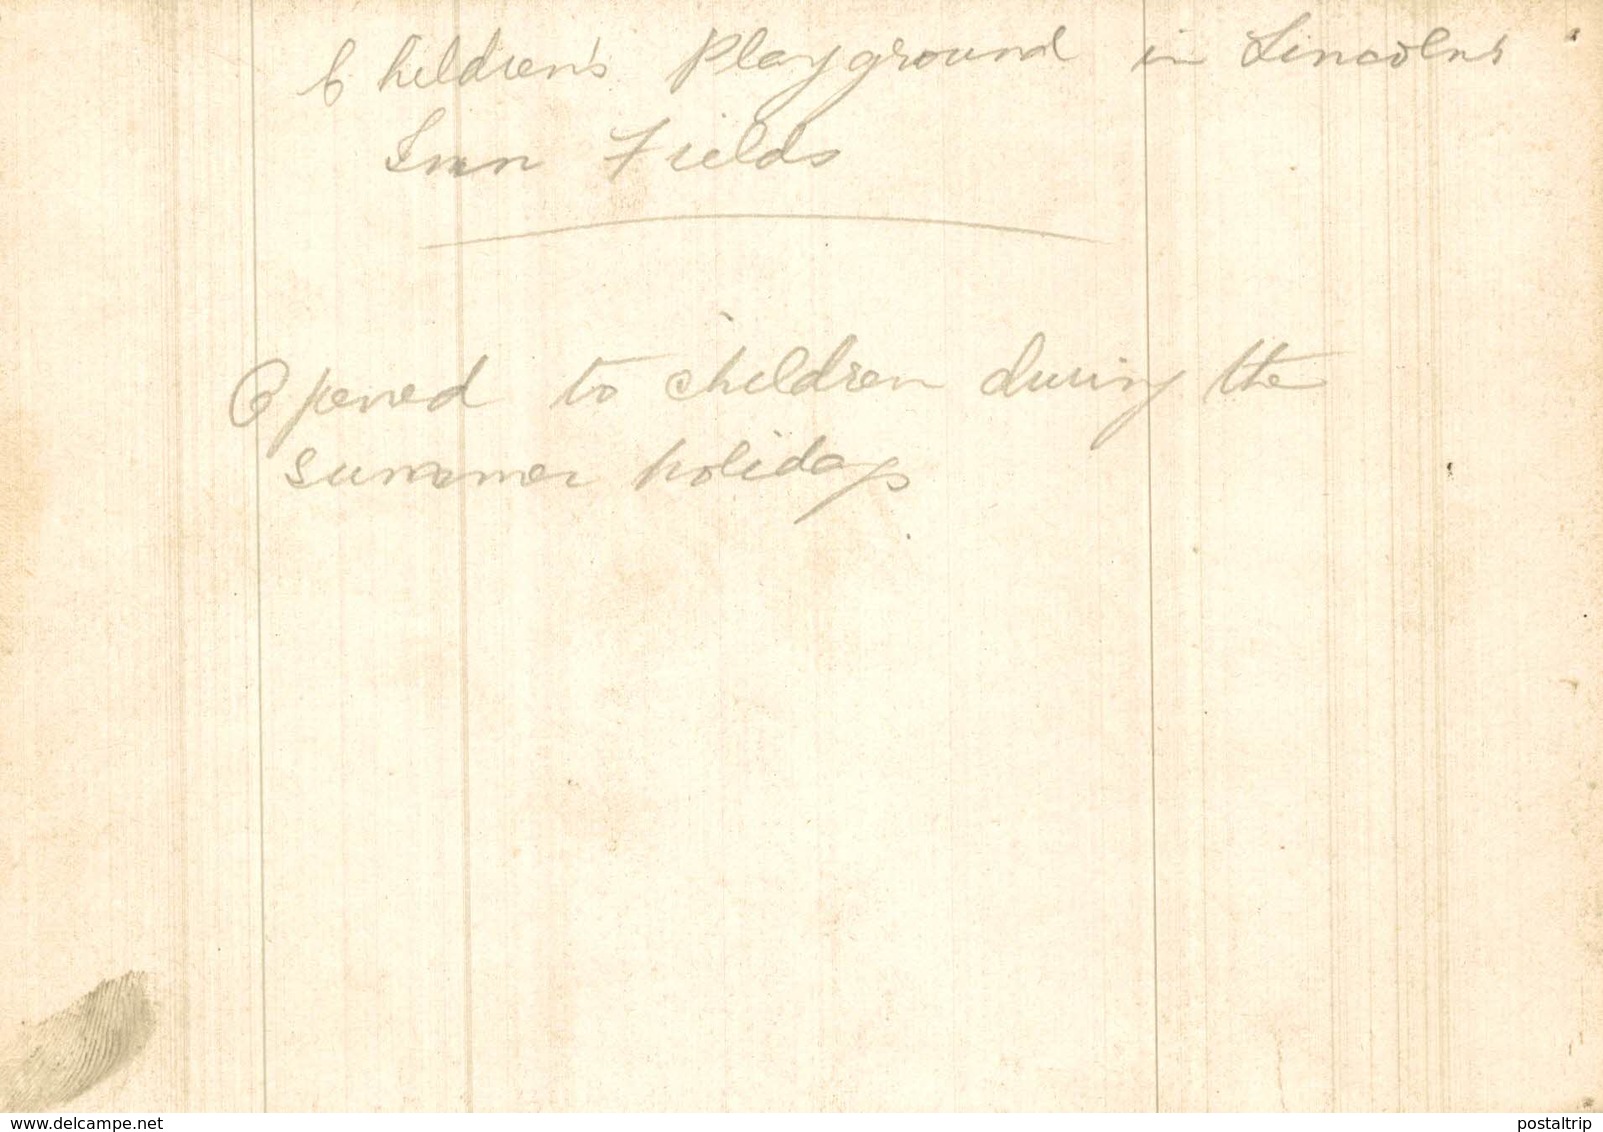 Children's Playground in Lincolns
Inn Fields
Opened to children during the
summer holidays
www.delcampe.net
postaltrip